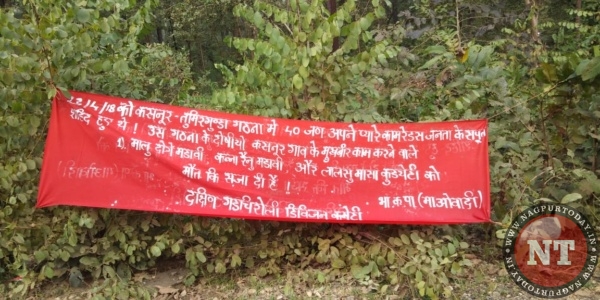 22/4/18 को कसनूर - तुमिरगुण्डा गठना मे 40 जण अपने प्यारे कामरेडस जनता के सपूत
शहिद हुए थे ! उस गठना के दोषीयो कसनूर गाव के मुखबीर काम करने वाले
मालु दोगे मडावी, कन्ना रैनु मडावी, और लालसु मासा कुडयेटी को
मौत कि सजा दी हैं !
दक्षिण गडचिरोली डिविजन कमेटी भा.क.पा (माओवादी)
NT
WWW.NAGPURTODAY.IN
WWW.NAGPURTODAY.IN